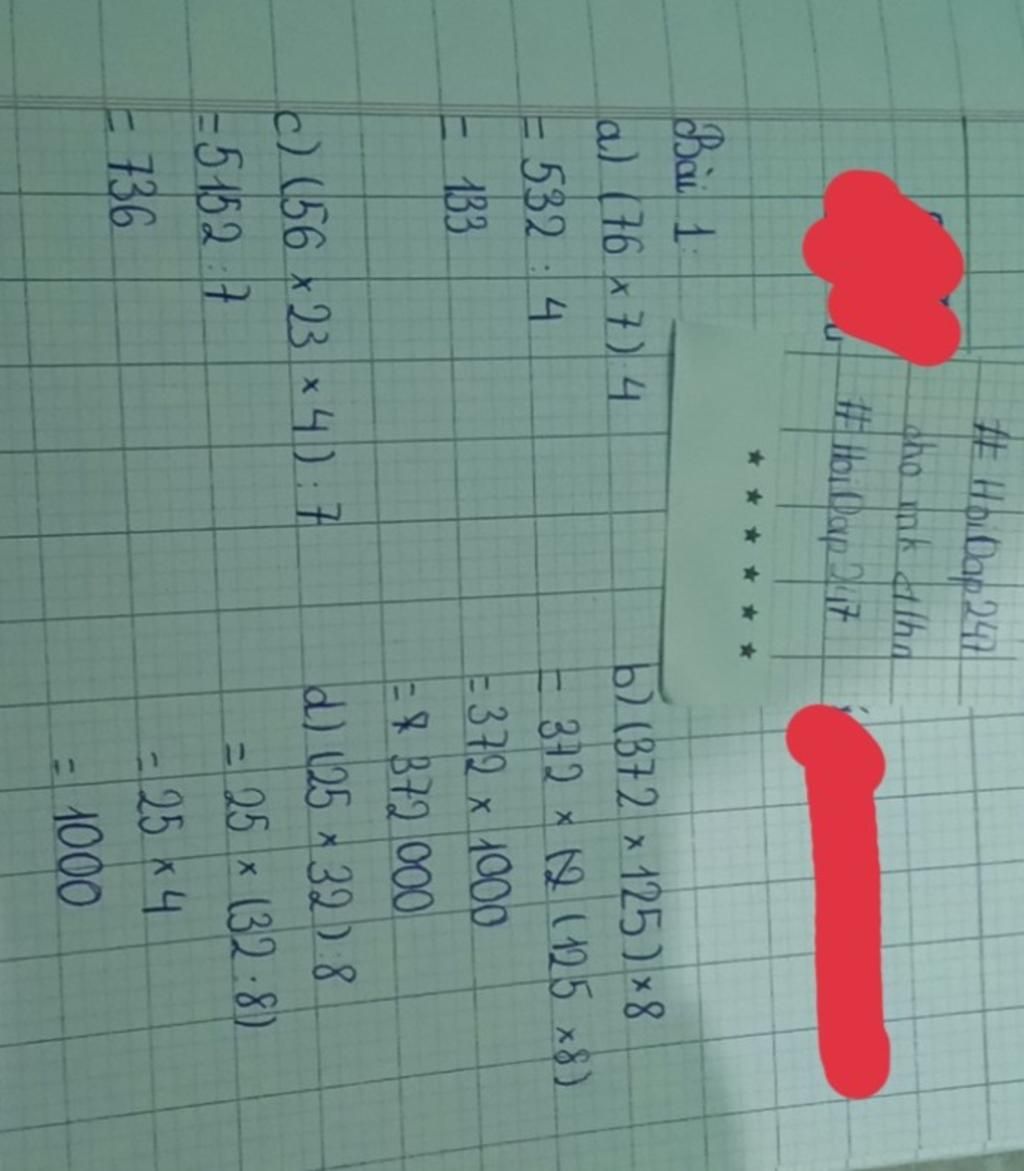 # HoiDap247
cho mk ctlhn
# HoiDap247
Bài 1:
a) (76 x 7) : 4
= 532 : 4
= 133
b) (372 x 125) x 8
= 372 x (125 x 8)
= 372 x 1000
= 372 000
c) (56 x 23 x 4) : 7
= 5152 : 7
= 736
d) (25 x 32) : 8
= 25 x (32 : 8)
= 25 x 4
= 1000